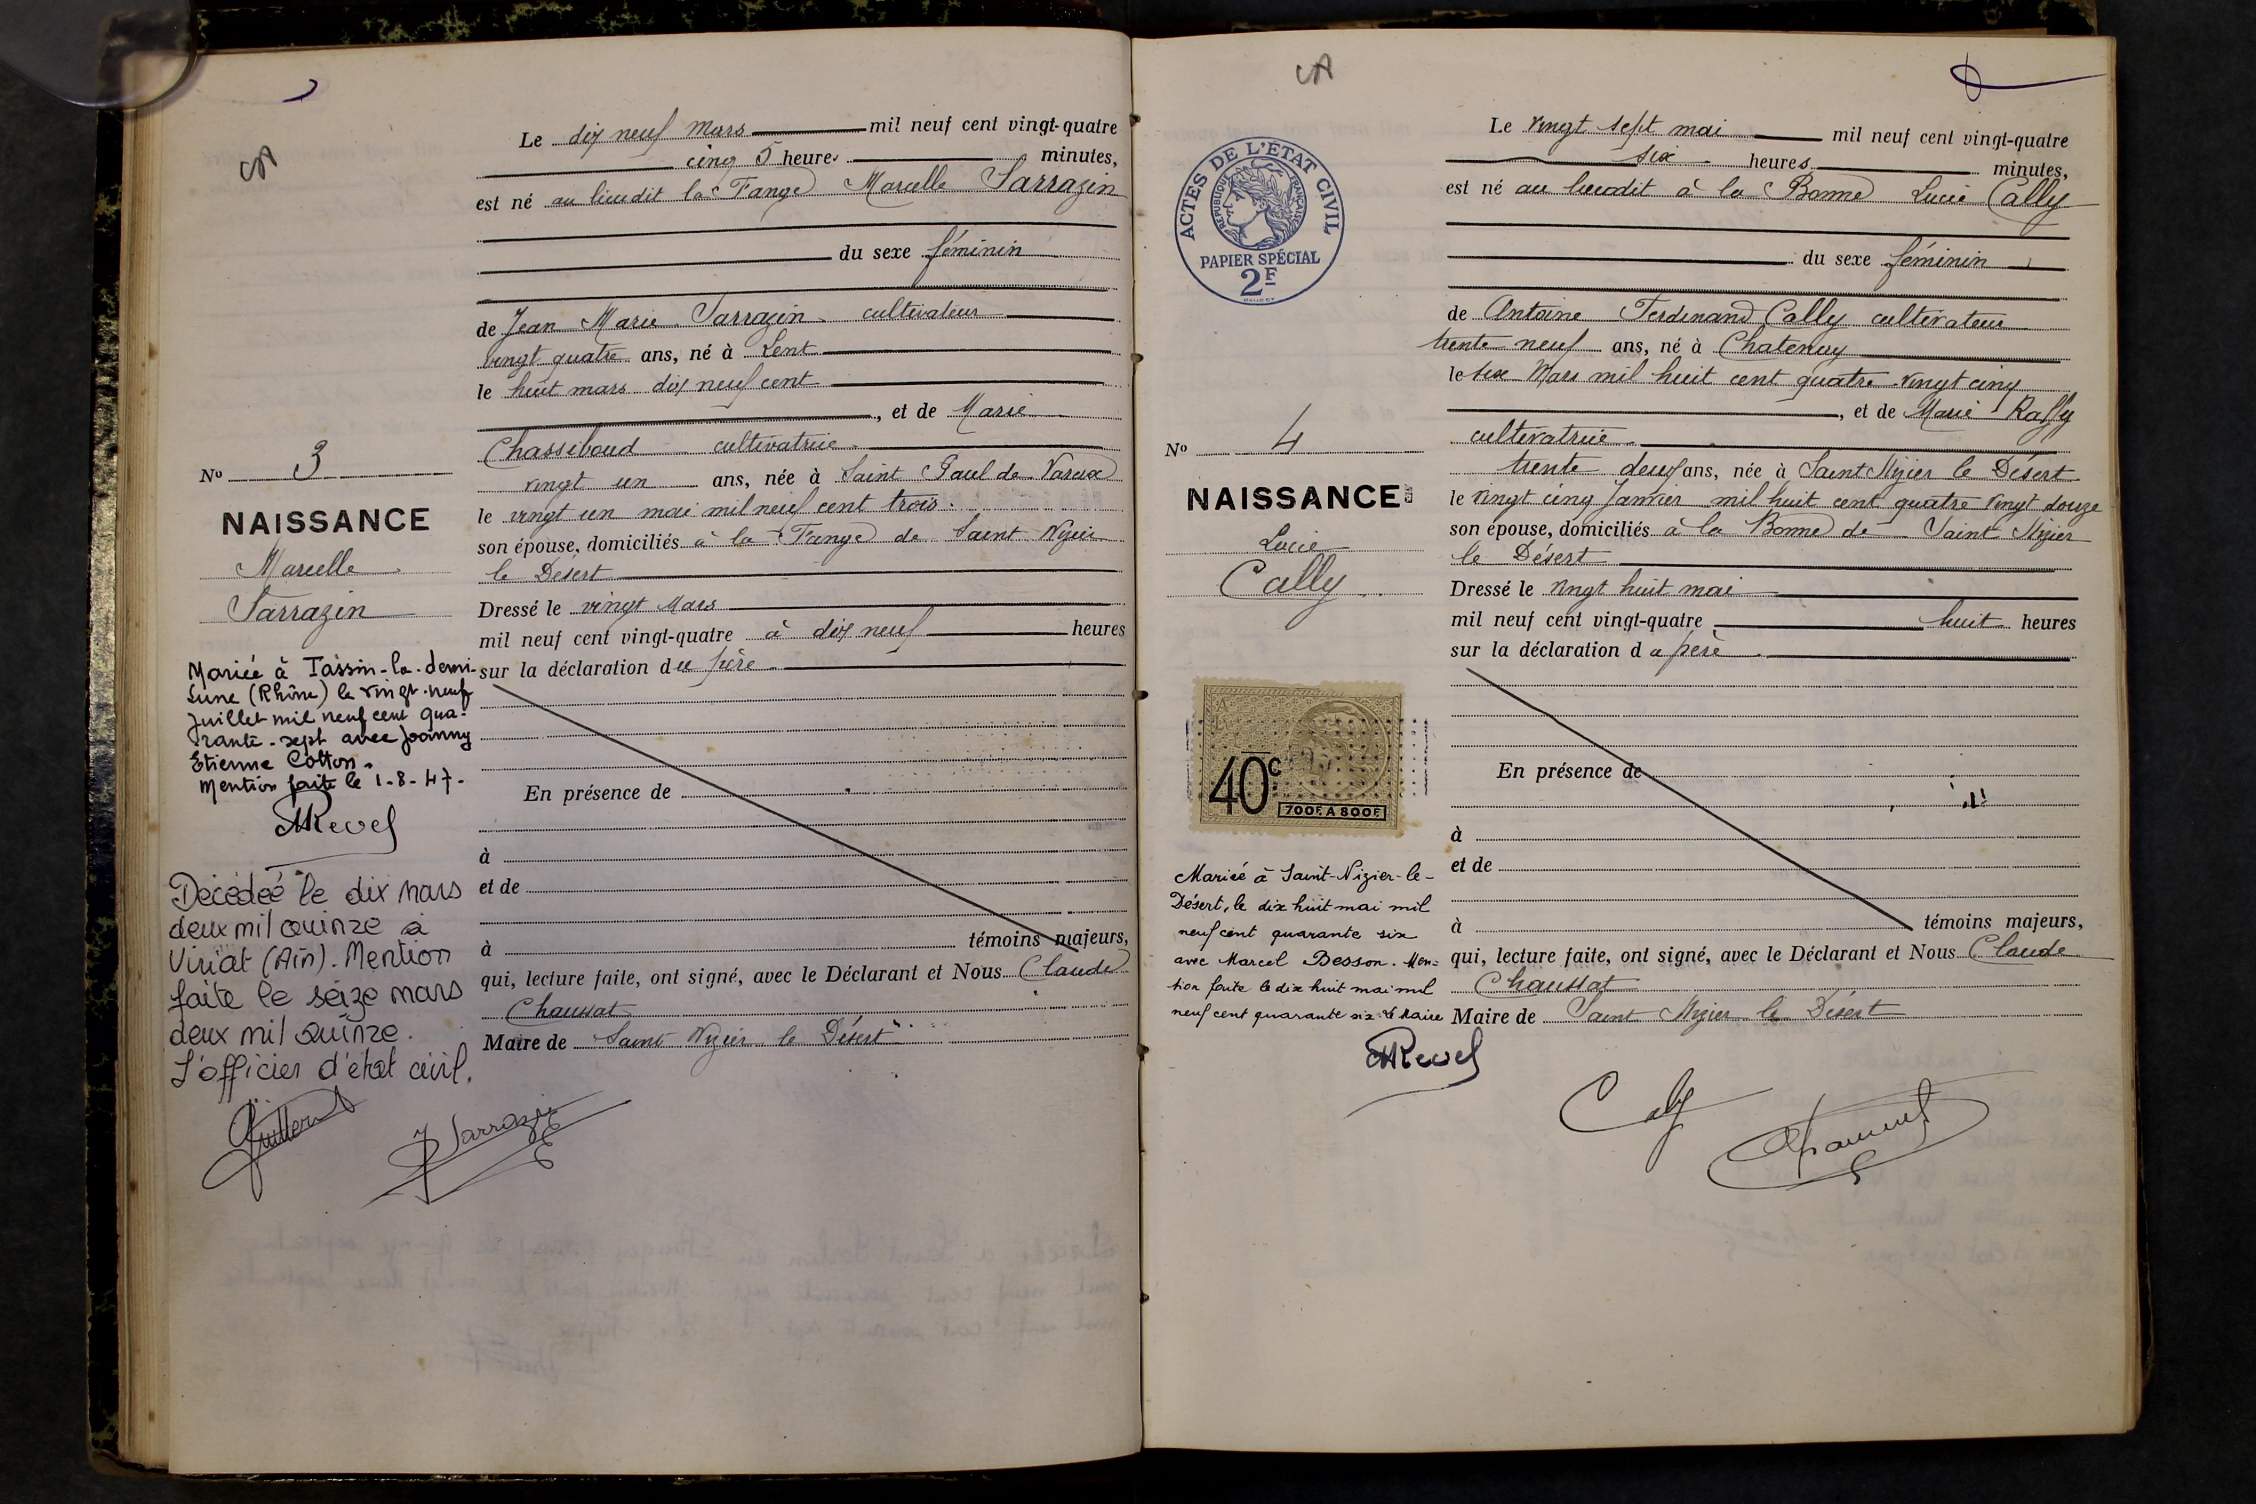 Le dix neuf Mars mil neuf cent vingt-quatre
cinq 5 heures minutes,
est né au lieudit la Fange Marcelle Sarrazin
du sexe féminin
de Jean Marie Sarrazin cultivateur
vingt quatre ans, né à Lent
le huit mars dix neuf cent
, et de Marie
Chassiboud cultivatrice
vingt un ans, née à Saint Paul de Varax
le vingt un mai mil neuf cent trois.
son épouse, domiciliés à la Fange de Saint Nizier
le Désert
Dressé le vingt Mars
mil neuf cent vingt-quatre à dix neuf heures
sur la déclaration du père
En présence de
à
et de
à témoins majeurs,
qui, lecture faite, ont signé, avec le Déclarant et Nous Claude
Chaussat
Maire de Saint Nizier le Désert
No 3
NAISSANCE
Marcelle
Sarrazin
Mariée à Tassin-la-demi-
Lune (Rhône) le vingt-neuf
Juillet mil neuf cent qua-
rante-sept avec Joanny
Etienne Cotton.
Mention faite le 1-8-47-
MRevel
Décédée le dix mars
deux mil quinze à
Viriat (Ain). Mention
faite le seize mars
deux mil quinze.
L'officier d'état civil,
J Sarrazin
ACTES DE L'ÉTAT CIVIL
RÉPUBLIQUE FRANÇAISE
PAPIER SPÉCIAL
2F
Le vingt sept mai mil neuf cent vingt-quatre
six heures minutes,
est né au lieudit à la Bonne Lucie Cally
du sexe féminin
de Antoine Ferdinand Cally cultivateur
trente neuf ans, né à Chatenay
le six Mars mil huit cent quatre vingt cinq
, et de Marie Raffy
cultivatrice
trente deux ans, née à Saint Nizier le Désert
le vingt cinq Janvier mil huit cent quatre vingt douze
son épouse, domiciliés à la Bonne de Saint Nizier
le Désert
Dressé le vingt huit mai
mil neuf cent vingt-quatre huit heures
sur la déclaration d u père
En présence de
à
et de
à témoins majeurs,
qui, lecture faite, ont signé, avec le Déclarant et Nous Claude
Chaussat
Maire de Saint Nizier le Désert
No 4
NAISSANCE
Lucie
Cally
40c
700F. A 800F.
Mariée à Saint-Nizier-le-
Désert, le dix huit mai mil
neuf cent quarante six
avec Marcel Besson. Men=
tion faite le dix huit mai mil
neuf cent quarante six. Le Maire
MRevel
Cally
Chaussat